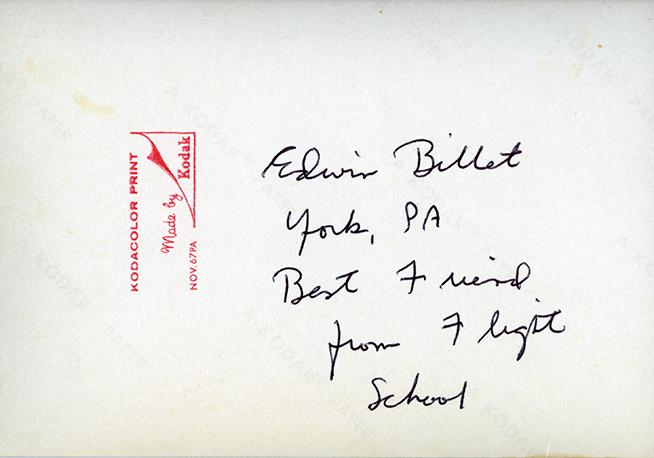 KODACOLOR PRINT
Made by
Kodak
NOV. 67PA
Edwin Billet
York, PA
Best Friend
from Flight
School